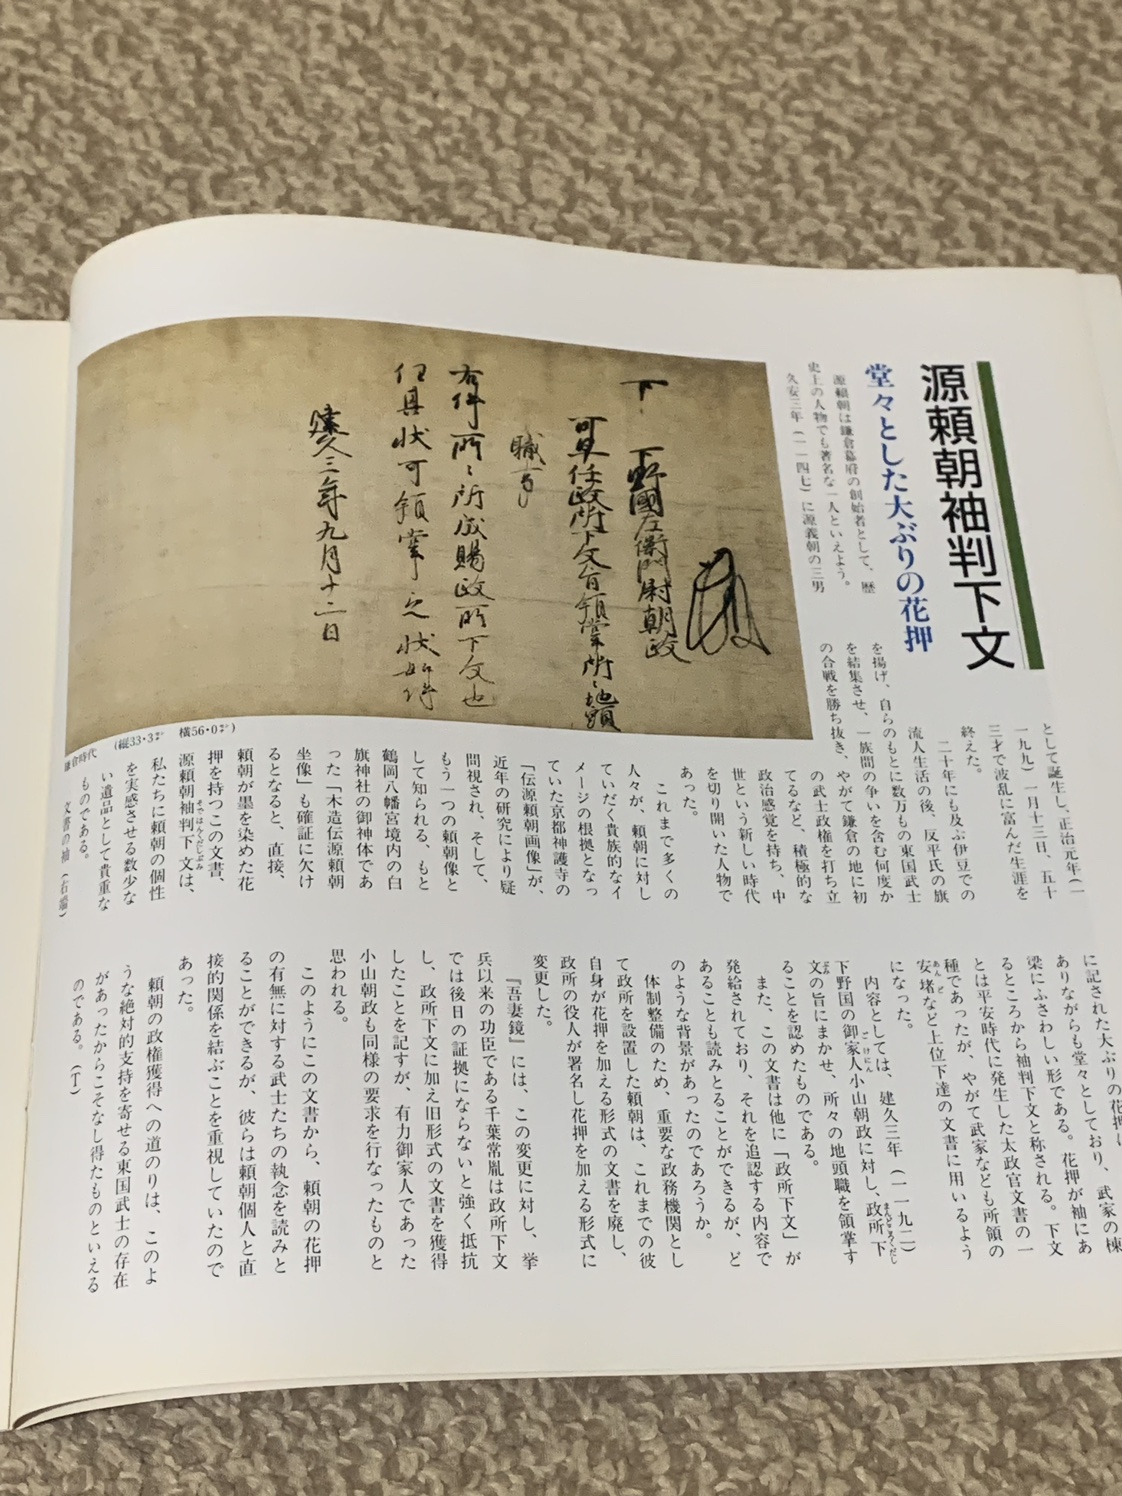 源頼朝袖判下文
堂々とした大ぶりの花押
源頼朝は鎌倉幕府の創始者として、歴
史上の人物でも著名な一人といえよう。
久安三年(一一四七)に源義朝の三男
として誕生し、正治元年(一
一九九)一月十三日、五十
三才で波乱に富んだ生涯を
終えた。
二十年にも及ぶ伊豆での
流人生活の後、反平氏の旗
を揚げ、自らのもとに数万もの東国武士
を結集させ、一族間の争いを含む何度か
の合戦を勝ち抜き、やがて鎌倉の地に初
の武士政権を打ち立
てるなど、積極的な
政治感覚を持ち、中
世という新しい時代
を切り開いた人物で
あった。
これまで多くの
人々が、頼朝に対し
ていだく貴族的なイ
メージの根拠となっ
ていた京都神護寺の
「伝源頼朝画像」が、
近年の研究により疑
問視され、そして、
もう一つの頼朝像と
して知られる、もと
鶴岡八幡宮境内の白
旗神社の御神体であ
った「木造伝源頼朝
坐像」も確証に欠け
るとなると、直接、
頼朝が墨を染めた花
押を持つこの文書、
源頼朝袖判下文は、
私たちに頼朝の個性
を実感させる数少な
い遺品として貴重な
ものである。
文書の袖(右端)
に記された大ぶりの花押は
ありながらも堂々としており、武家の棟
梁にふさわしい形である。花押が袖にあ
るところから袖判下文と称される。下文
とは平安時代に発生した太政官文書の一
種であったが、やがて武家なども所領の
安堵など上位下達の文書に用いるよう
になった。
内容としては、建久三年(一一九二)
下野国の御家人小山朝政に対し、政所下
文の旨にまかせ、所々の地頭職を領掌す
ることを認めたものである。
また、この文書は他に「政所下文」が
発給されており、それを追認する内容で
あることも読みとることができるが、ど
のような背景があったのであろうか。
体制整備のため、重要な政務機関とし
て政所を設置した頼朝は、これまでの彼
自身が花押を加える形式の文書を廃し、
政所の役人が署名し花押を加える形式に
変更した。
『吾妻鏡』には、この変更に対し、挙
兵以来の功臣である千葉常胤は政所下文
では後日の証拠にならないと強く抵抗
し、政所下文に加え旧形式の文書を獲得
したことを記すが、有力御家人であった
小山朝政も同様の要求を行なったものと
思われる。
このようにこの文書から、頼朝の花押
の有無に対する武士たちの執念を読みと
ることができるが、彼らは頼朝個人と直
接的関係を結ぶことを重視していたので
あった。
頼朝の政権獲得への道のりは、このよ
うな絶対的支持を寄せる東国武士の存在
があったからこそなし得たものといえる
のである。(T)
下 下野國左衛門尉朝政
可早任政所下文旨領掌所〻地頭
職事
右件所〻所成賜政所下文也
任其状可領掌之状如件
建久三年九月十二日
鎌倉時代 (縦33・3㌢ 横56・0㌢)